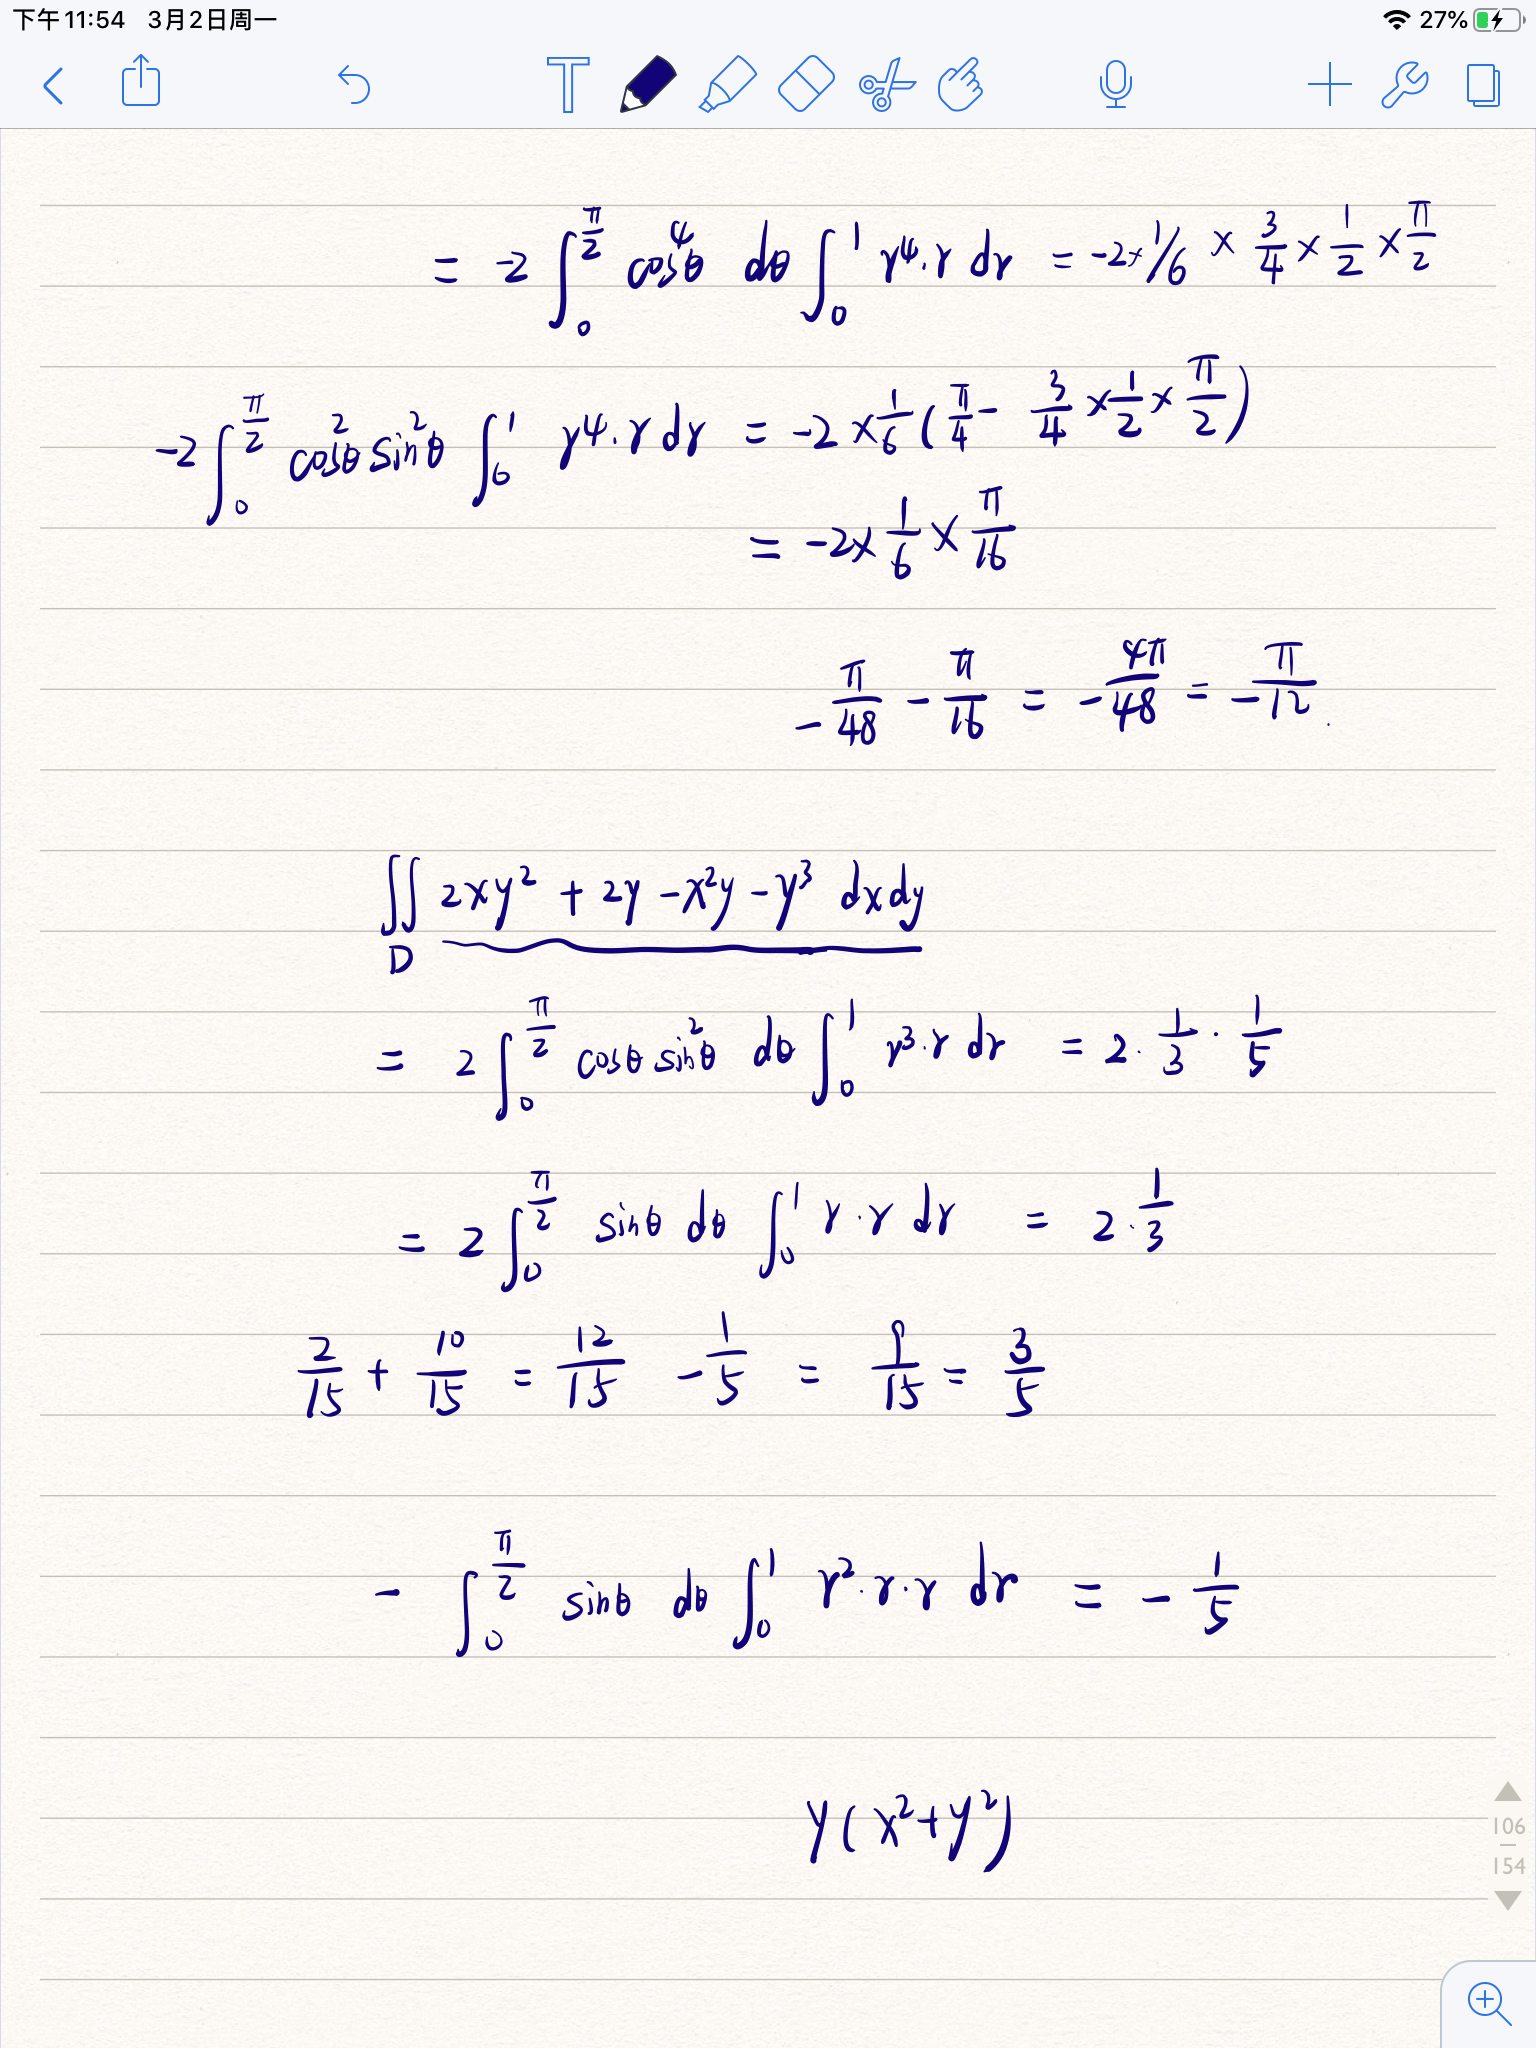 下午11:54 3月2日周一 27%
T
= -2 ∫_0^{π/2} cos^4θ dθ ∫_0^1 r^4·r dr = -2×1/6 × 3/4 × 1/2 × π/2
-2 ∫_0^{π/2} cos^2θ sin^2θ ∫_0^1 r^4·r dr = -2 × 1/6 ( π/4 - 3/4 × 1/2 × π/2 )
= -2× 1/6 × π/16
- π/48 - π/16 = - 4π/48 = - π/12 .
∬_D 2xy^2 + 2y - x^2y - y^3 dxdy
= 2 ∫_0^{π/2} cosθ sin^2θ dθ ∫_0^1 r^3·r dr = 2· 1/3 · 1/5
= 2 ∫_0^{π/2} sinθ dθ ∫_0^1 r·r dr = 2· 1/3
2/15 + 10/15 = 12/15 - 1/5 = 9/15 = 3/5
- ∫_0^{π/2} sinθ dθ ∫_0^1 r^2·r·r dr = - 1/5
y(x^2+y^2)
106
154